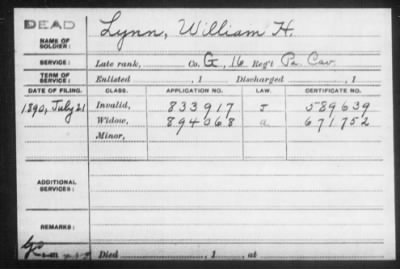 DEAD
NAME OF SOLDIER: Lynn, William H.
SERVICE: Late rank, Co. G, 16 Reg't Pa. Cav.
TERM OF SERVICE: Enlisted , 1 Discharged , 1
DATE OF FILING. CLASS. APPLICATION NO. LAW. CERTIFICATE NO.
1890, July 21 Invalid, 833917 J 589639
Widow, 894068 a 671752
Minor,
ADDITIONAL SERVICES:
REMARKS:
Died , 1 , at